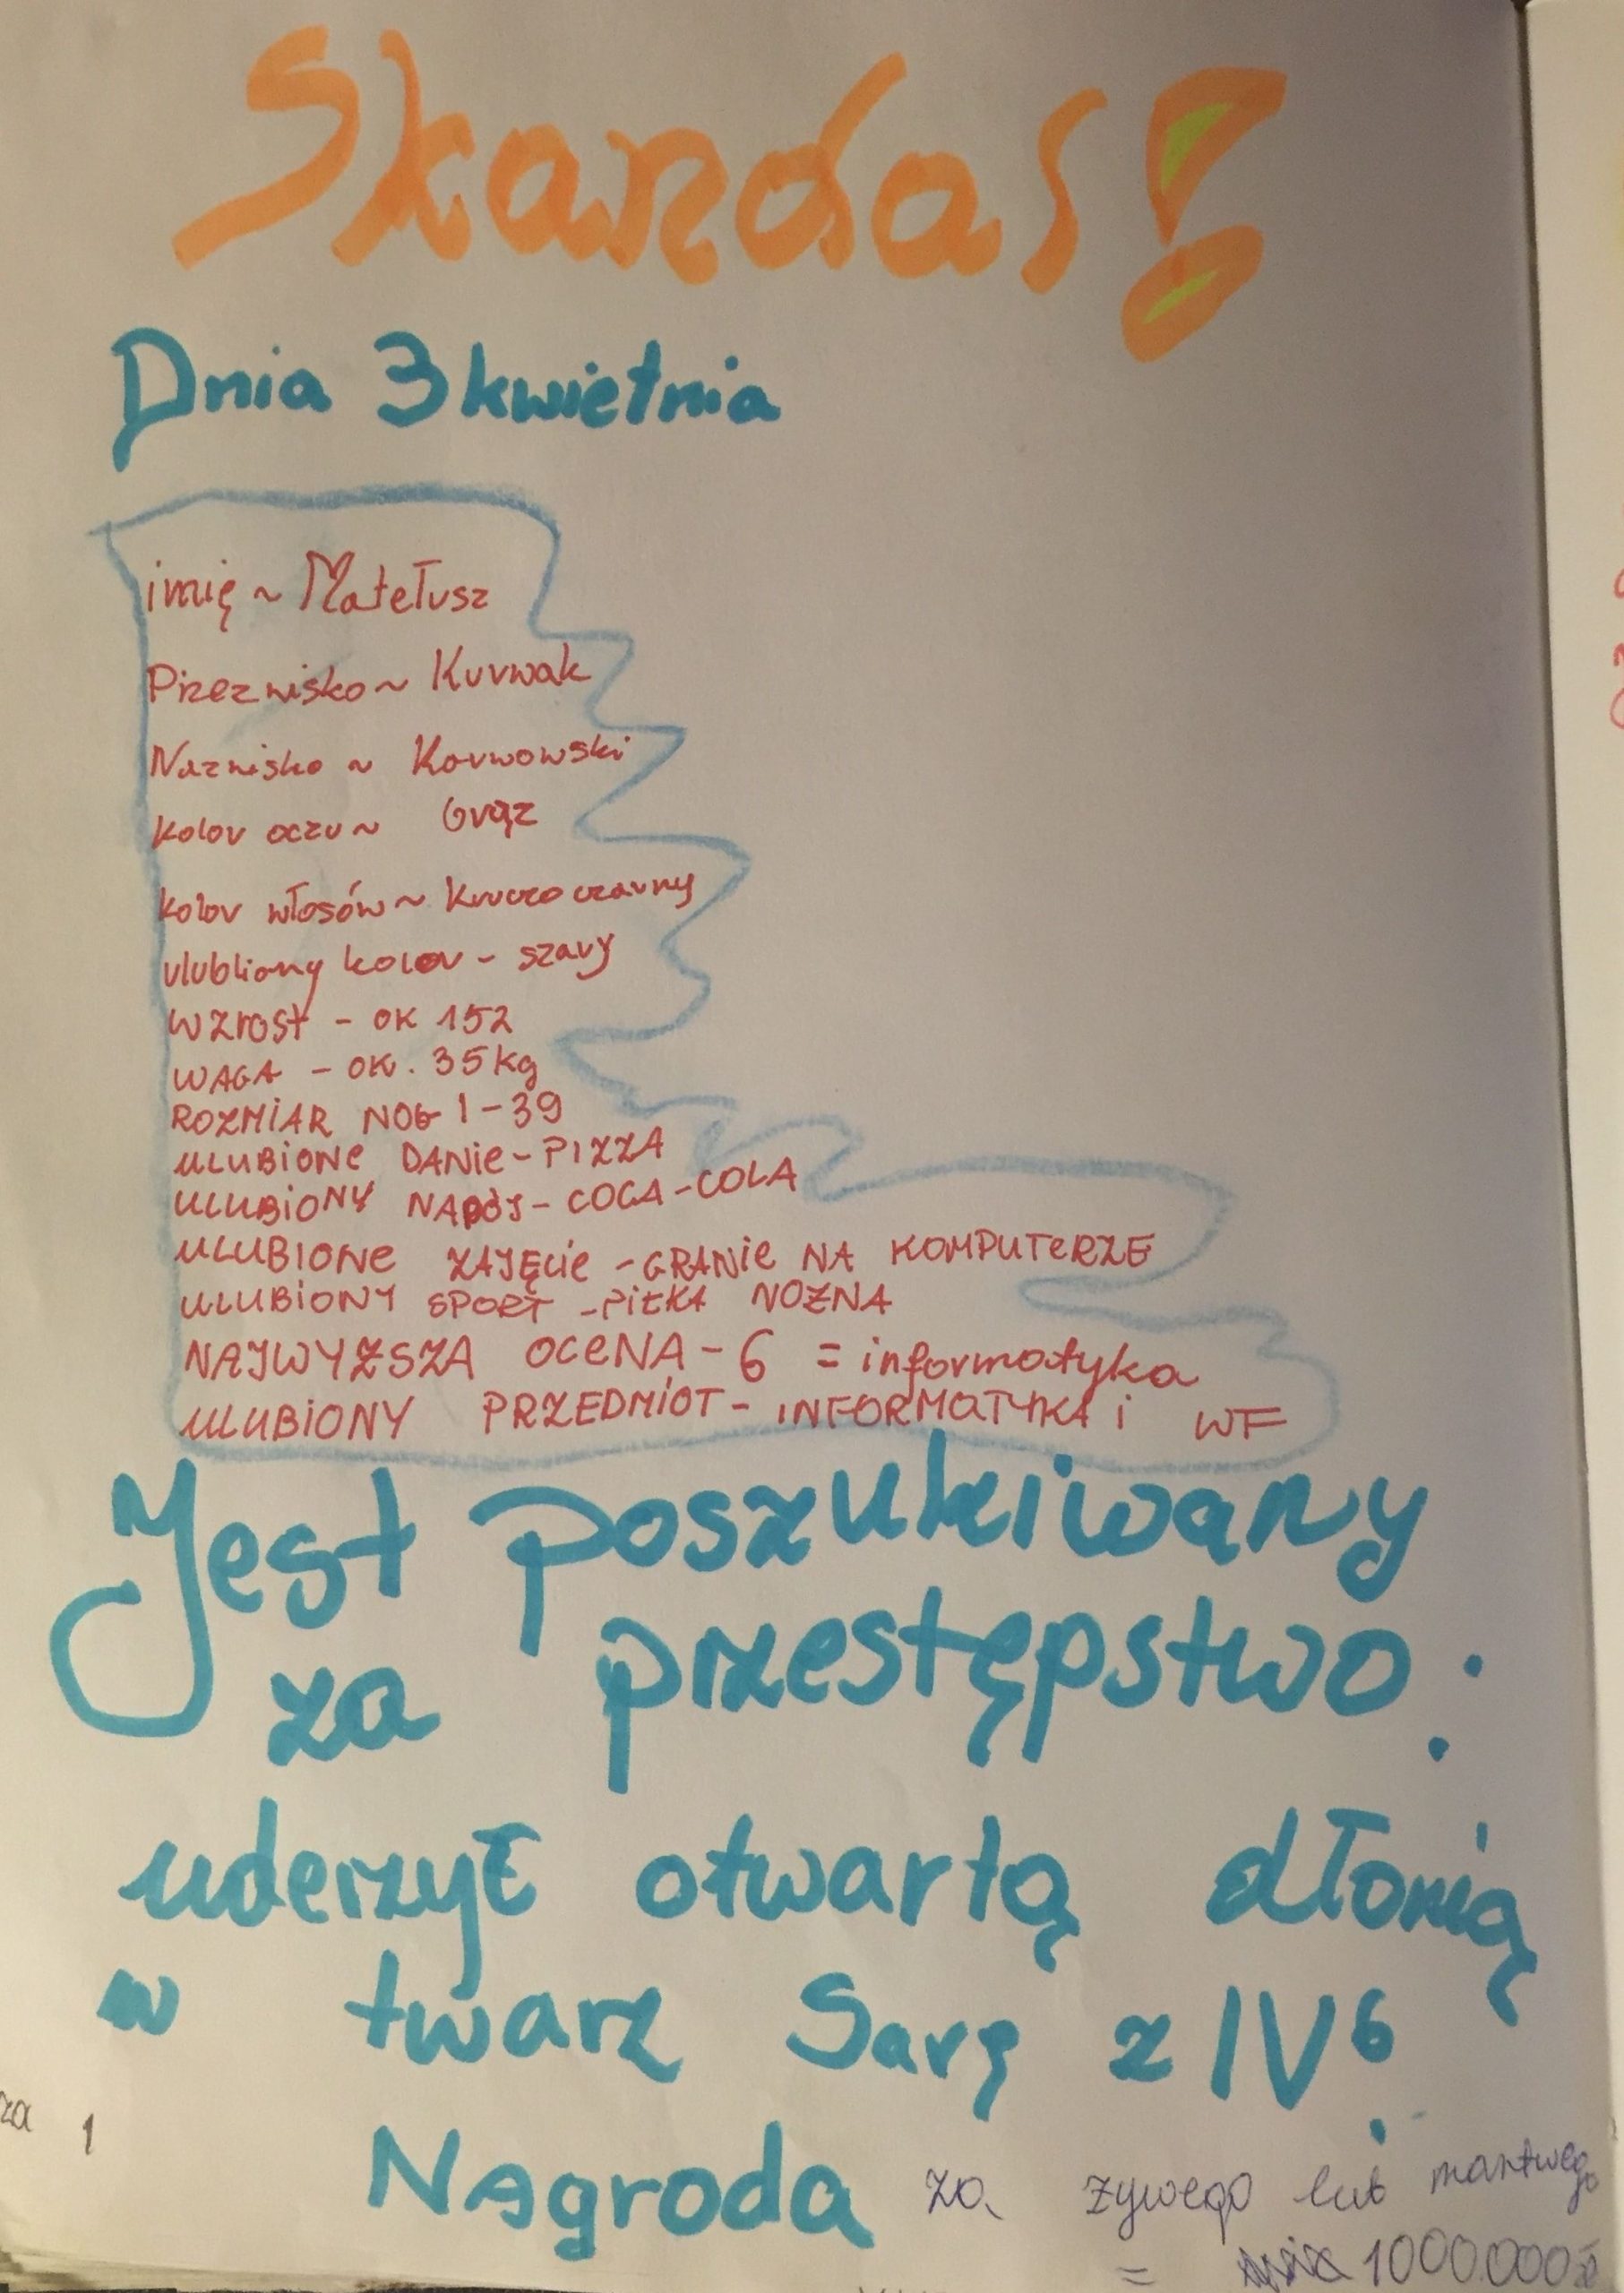 Skandal!
Dnia 3 kwietnia
imię ~ Matełusz
Przezwisko ~ Kurwak
Nazwisko ~ Karwowski
kolor oczu ~ brąz
kolor włosów ~ kruczoczarny
ulubliony kolor - szary
WZrost - OK 152
WAGA - OK. 35 kg
ROZMIAR NOG I - 39
ULUBIONE DANIE - PIZZA
ULUBIONY NAPÓJ - COCA-COLA
ULUBIONE ZAJĘCIE - GRANIE NA KOMPUTERZE
ULUBIONY SPORT - PIŁKA NOŻNA
NAJWYŻSZA OCENA - 6 = informatyka
ULUBIONY PRZEDMIOT - INFORMATYKA i WF
Jest poszukiwany
za przestępstwo:
uderzył otwartą dłonią
w twarz Sarę z IV b.
za 1
Nagroda za żywego lub martwego
= 1000.000 zł